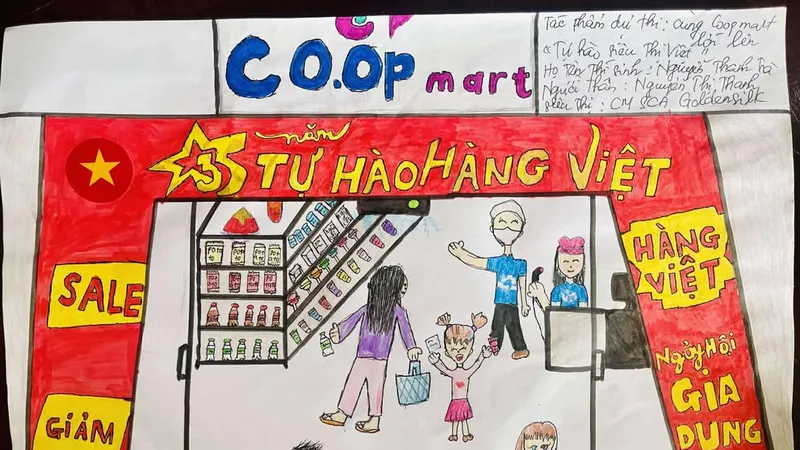 CO.OP mart
Tác phẩm dự thi: cùng Coopmart
lớn lên
"Tự hào siêu Thị Việt"
Họ Tên Thí Sinh: Nguyễn Thanh Trà
Người Thân: Nguyễn Thị Thanh
Siêu Thị: CM SCA Goldensilk
3 năm
TỰ HÀO HÀNG VIỆT
SALE
GIẢM
HÀNG
VIỆT
Ngày Hội
GIA
DỤNG